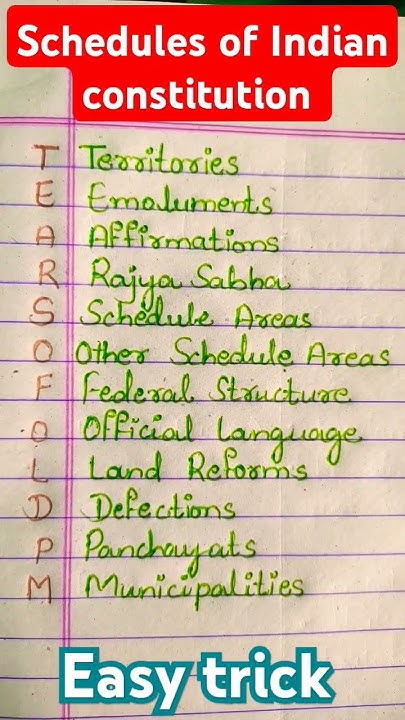 Schedules of Indian
constitution
T Territories
E Emoluments
A Affirmations
R Rajya Sabha
S Schedule Areas
O Other Schedule Areas
F Federal Structure
O Official Language
L Land Reforms
D Defections
P Panchayats
M Municipalities
Easy trick